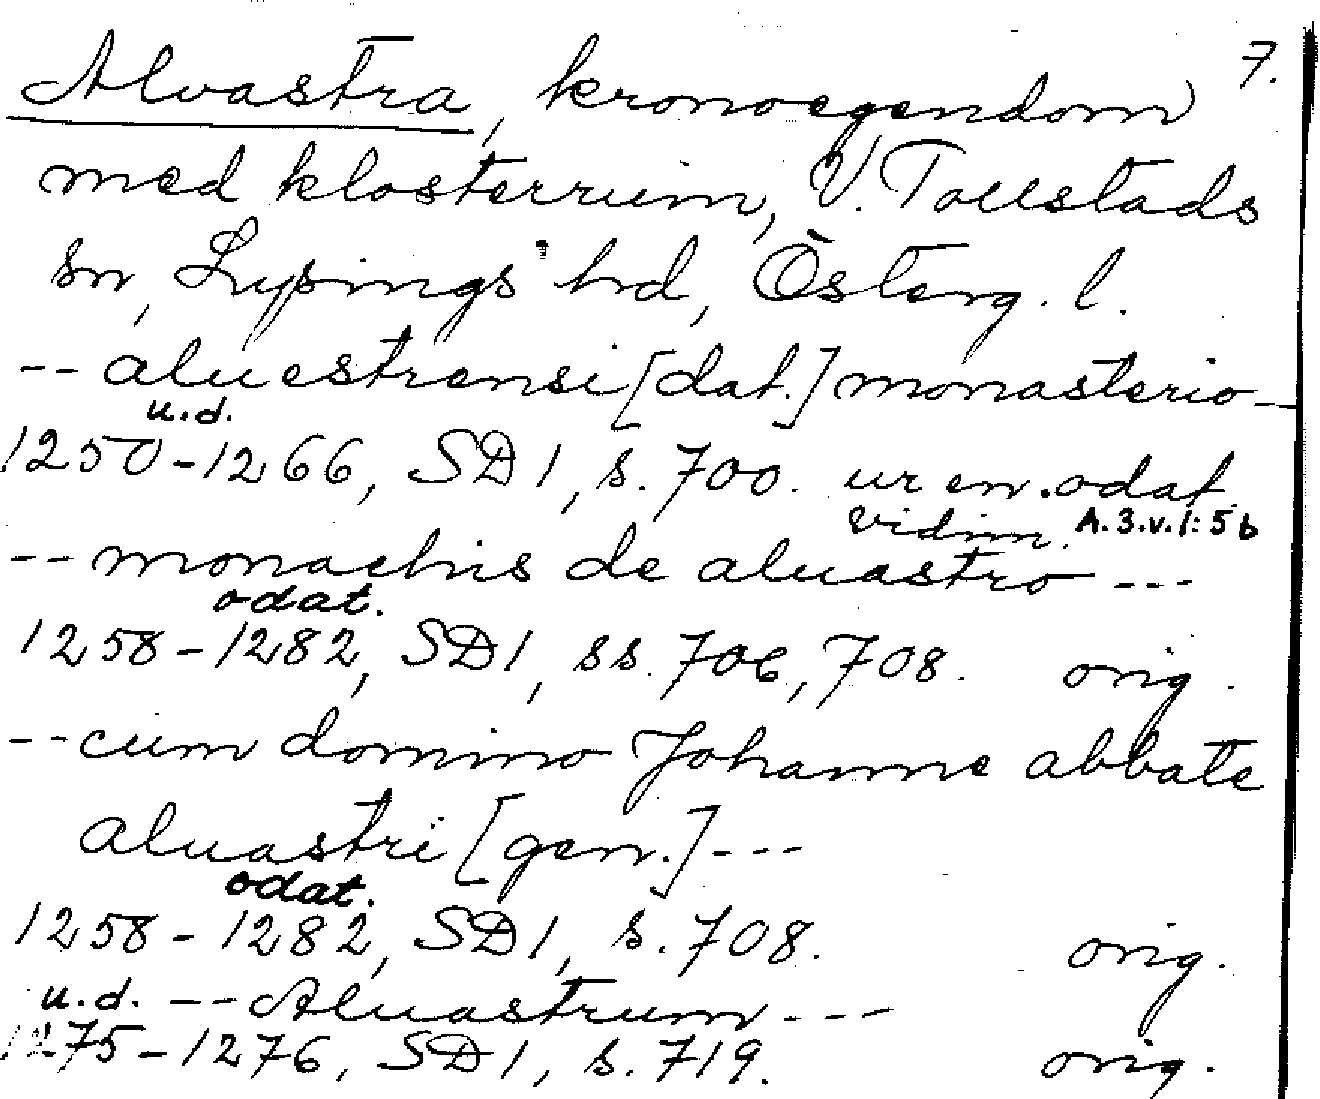 7.
Alvastra, kronoegendom
med klosterruin, V. Tollstads
sn, Lysings hd, Österg. l.
-- aluestrensi [dat.] monasterio --
u.d.
1250-1266, SD 1, s. 700. ur en odat.
vidim. A. 3. v. 1: 5 b
-- monachis de aluastro ---
odat.
1258-1282, SD 1, ss. 706, 708. orig.
-- cum domino Johanne abbate
aluastri [gen.] ---
odat.
1258-1282, SD 1, s. 708. orig.
u.d. -- Aluastrum ---
1275-1276, SD 1, s. 719. orig.